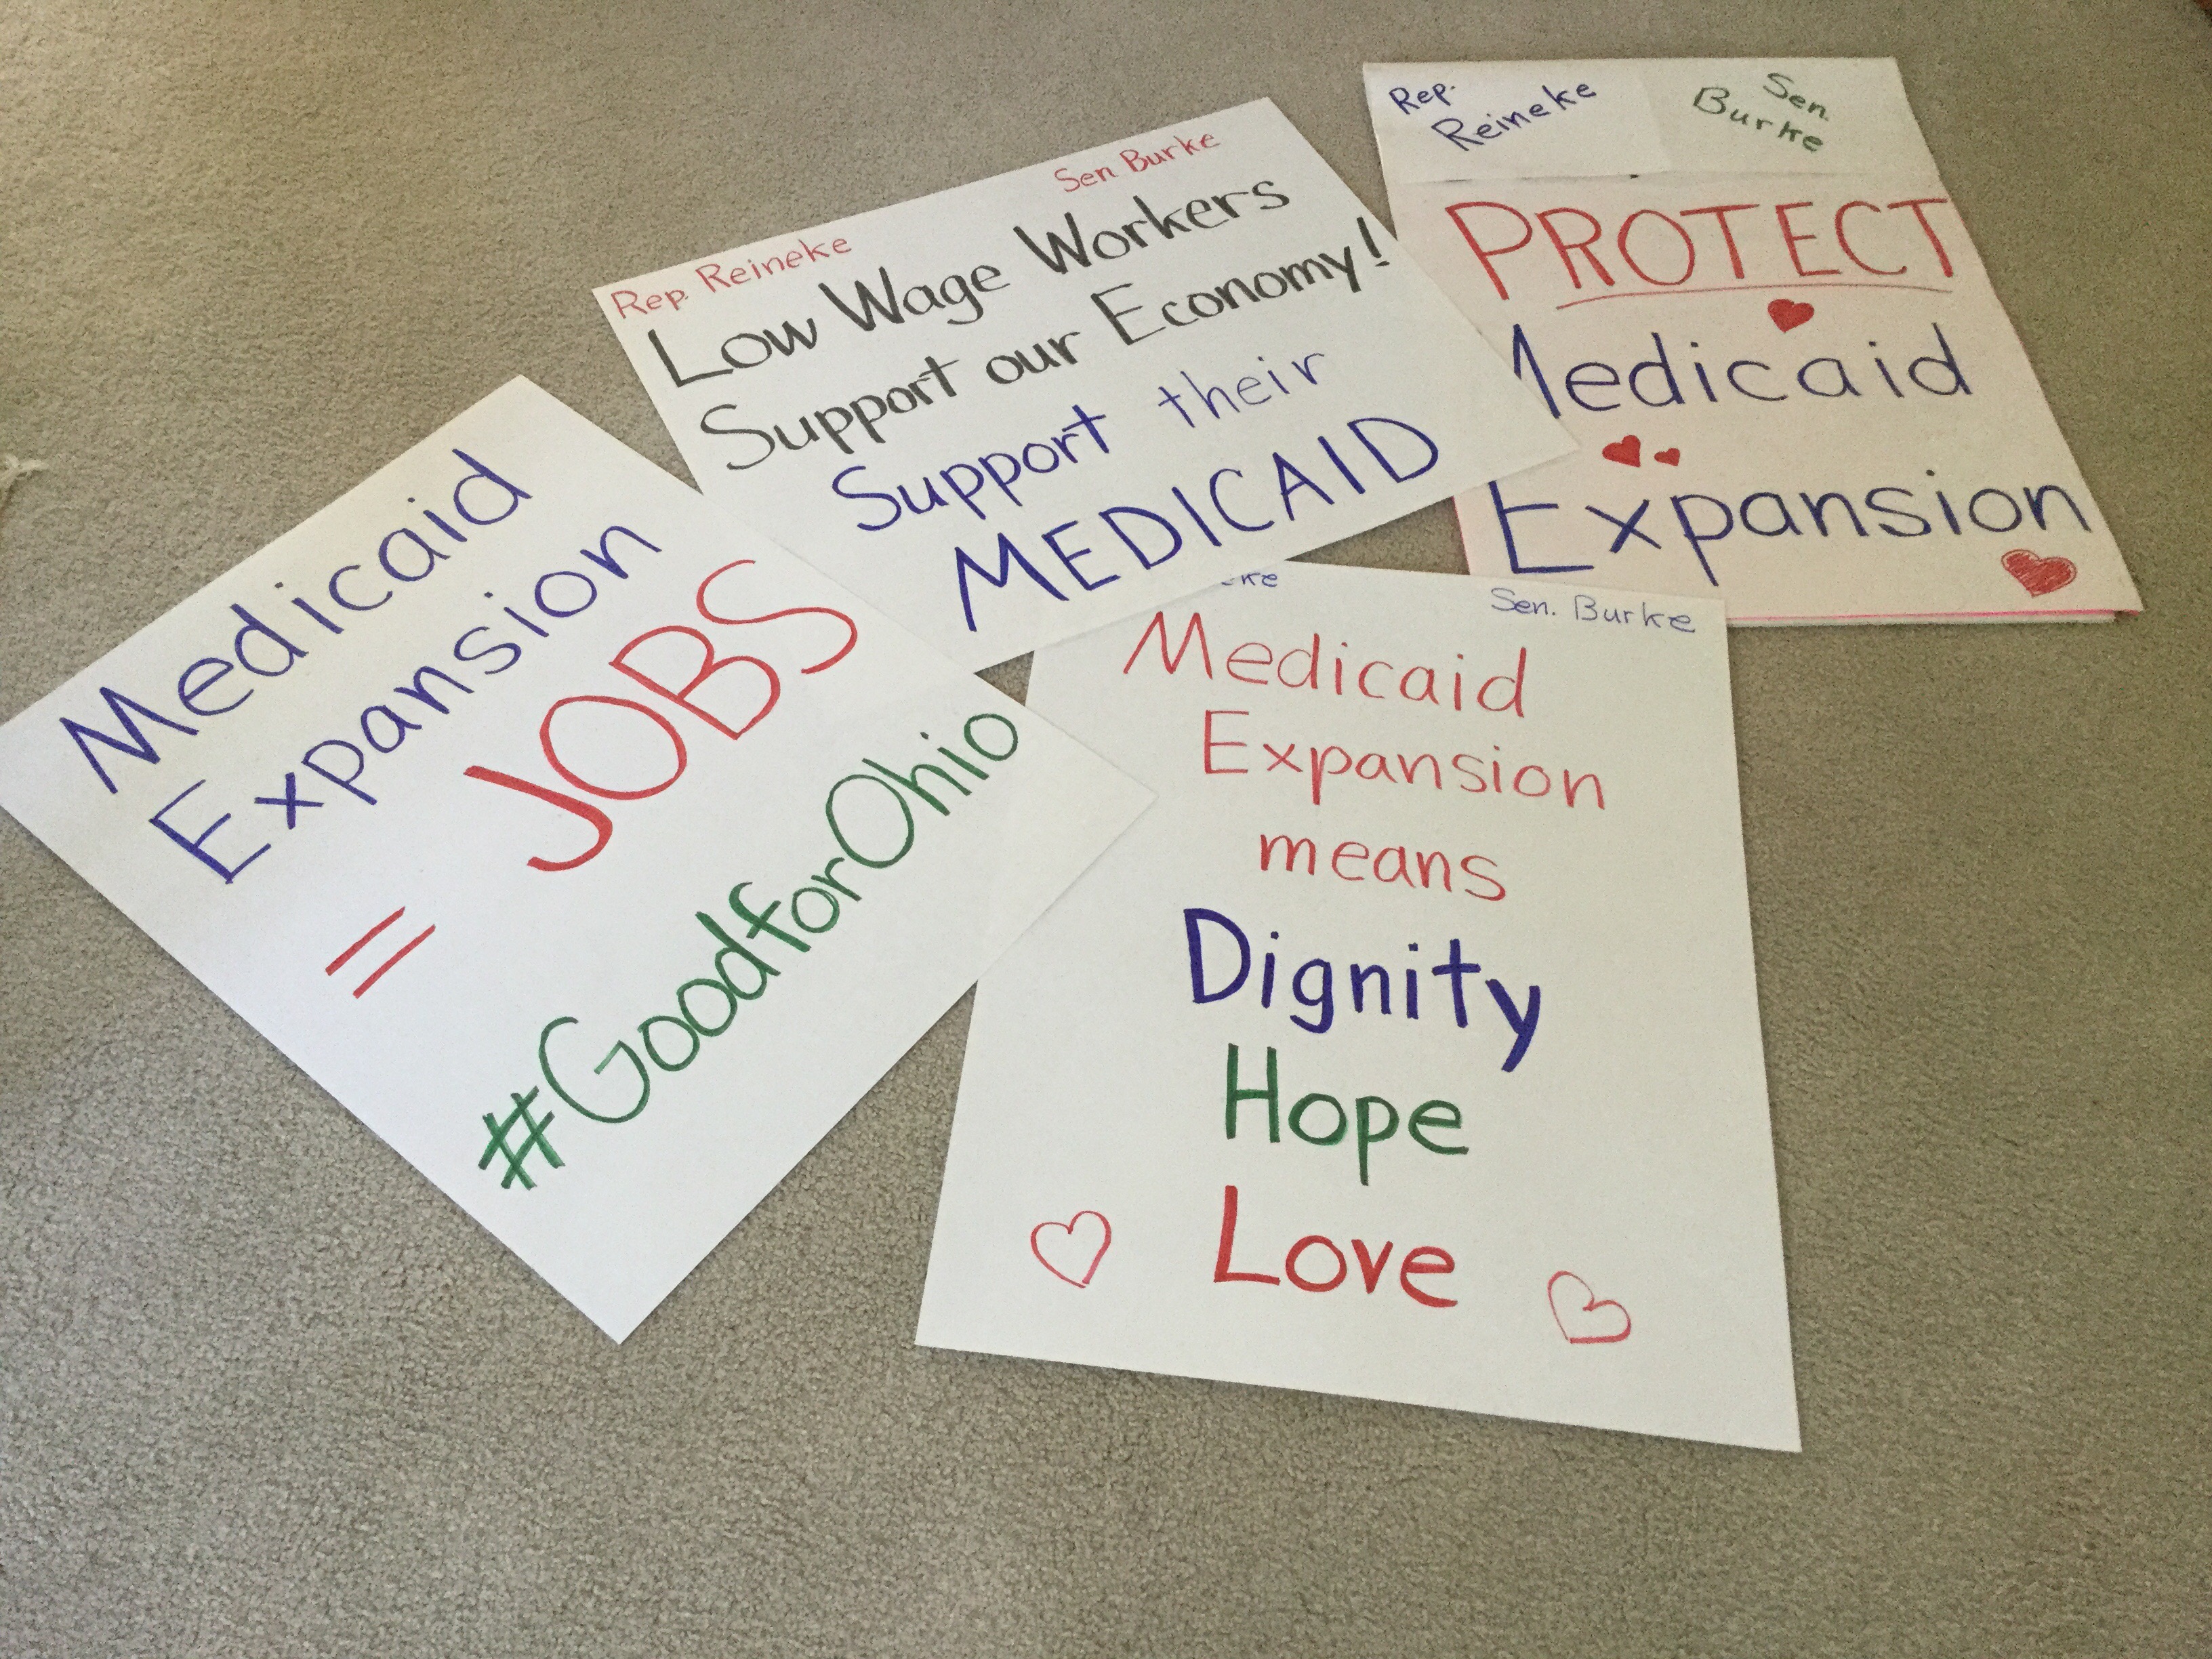 Medicaid
Expansion
= JOBS
#GoodforOhio
Rep. Reineke Sen. Burke
Low Wage Workers
Support our Economy!
Support their
MEDICAID
Rep. Reineke Sen. Burke
PROTECT
Medicaid
Expansion
Sen. Burke
Medicaid
Expansion
means
Dignity
Hope
Love